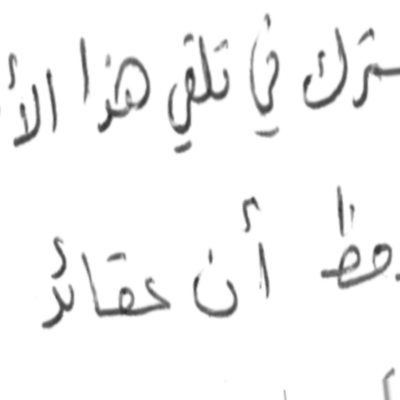 سترك في تلقي هذا الأ
حظ أن عقائد